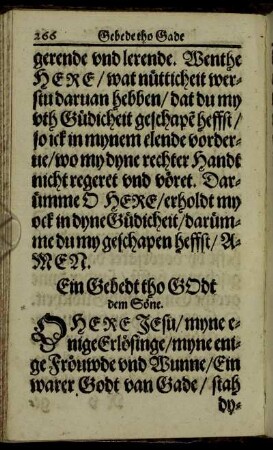 266 Gebede tho Gade
gerende vnd lerende. Wenthe
HERE/ wat nütticheit wer-
stu daruan hebben/ dat du my
vth Güdicheit geschapē heffst/
so ick in mynem elende vorder-
ue/ wo my dyne rechter Handt
nicht regeret vnd vöret. Dar-
ümme O HERE/ erholdt my
ock in dyne Güdicheit/ darüm-
me du my geschapen heffst/ A-
MEN.
Ein Gebedt tho GOdt
dem Söne.
O HERE JEsu/ myne e-
nige Erlösinge/ myne eni-
ge Fröuwde vnd Wunne/ Ein
warer Godt van Gade/ stah
dy-